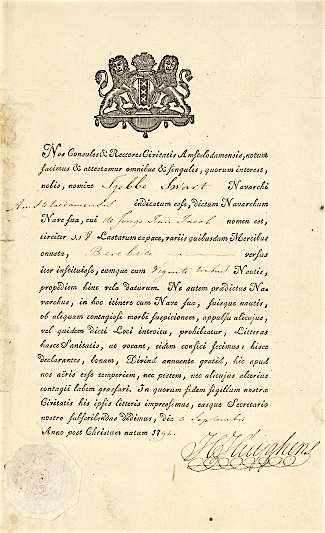 Nos Consules & Rectores Civitatis Amstelodamensis, notum
facimus & attestamur omnibus & singulis, quorum interest,
nobis, nomine Sjebbe Swart Navarchi
Amstelaedamensis indicatum esse, dictum Navarchum
Nave sua, cui de Jonge Jan Jacob nomen est,
circiter 118 Lastarum capace, variis quibusdam Mercibus
onusta, Berebice versus
iter instituisse, eumque cum Viginti Nautis,
propediem hinc vela daturum. Ne autem prædictus Na-
varchus, in hoc itinere cum Nave sua, suisque nautis,
ob aliquam contagiosi morbi suspicionem, appulsu alicujus,
vel quidem dicti Loci introitu, prohibeatur, Litteras
hasce Sanitatis, ut vocant, eidem confici fecimus: hisce
declarantes, bonam, Divinâ annuente gratiâ, hic apud
nos aëris esse temperiem, nec pestem, nec alicujus alterius
contagii labem grassari. In quorum fidem sigillum nostræ
Civitatis his ipsis litteris impressimus, easque Secretario
nostro subscribendas dedimus, die 3 Septembris
Anno post Christum natum 179
Huighens